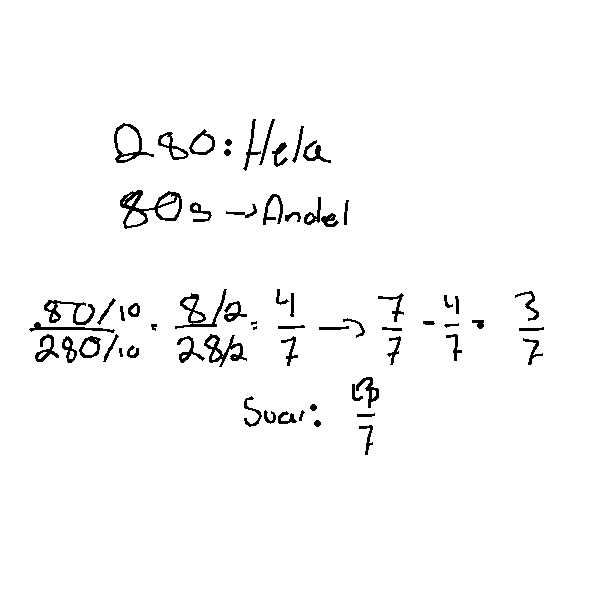 280: Hela
80s → Andel
80/10 / 280/10 = 8/2 / 28/2 = 4/7 → 7/7 - 4/7 = 3/7
Svar: 3/7